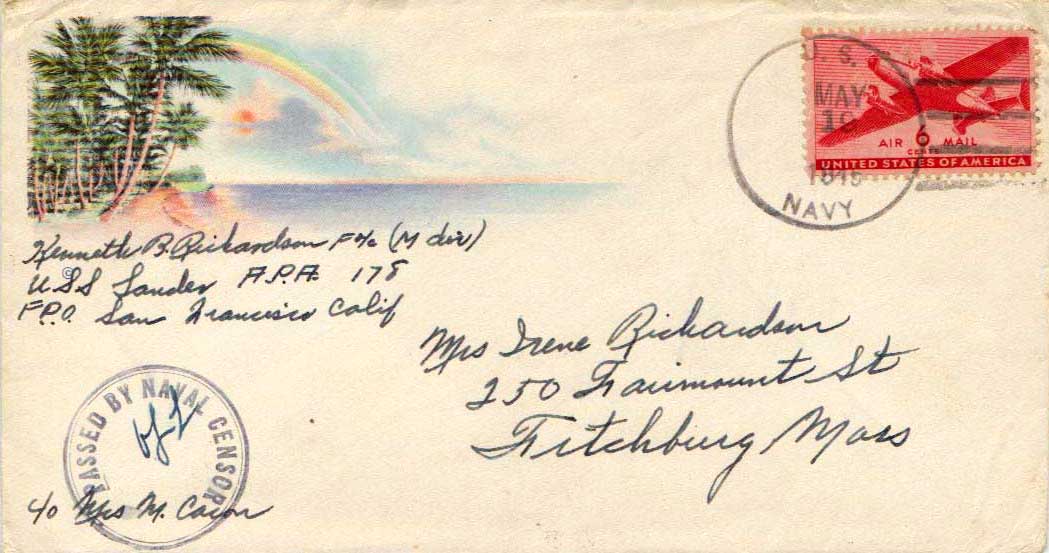 Kenneth B. Richardson F 2/c (M div)
USS Lander A.P.A. 178
F.P.O. San Francisco Calif
U. S.
MAY
1945
NAVY
AIR 6 MAIL
CENTS
UNITED STATES OF AMERICA
Mrs Irene Richardson
250 Fairmount St
Fitchburg Mass
PASSED BY NAVAL CENSOR
c/o Mrs M. Caron